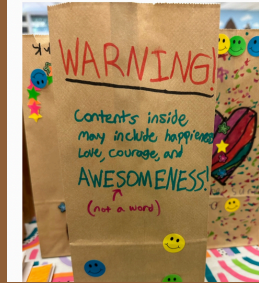 WARNING!
Contents inside
may include happieness
Love, Courage, and
AWESOMENESS!
(not a word)